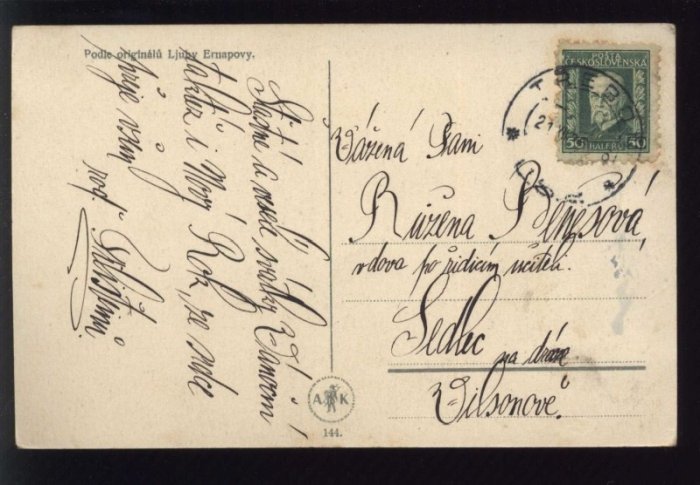 Podle originálů Ljuby Ernapovy.
Šťastné a veselé svátky Vánoční
takéž i Nový Rok, ze srdce
přeje všem
rod.
A K
144.
POŠTA
ČESKOSLOVENSKÁ
50 50
HALÉŘŮ
Vážená Paní
Růžena Benešová,
vdova po řídícím učiteli.
Sedlec
na dráze
Vilsonově.